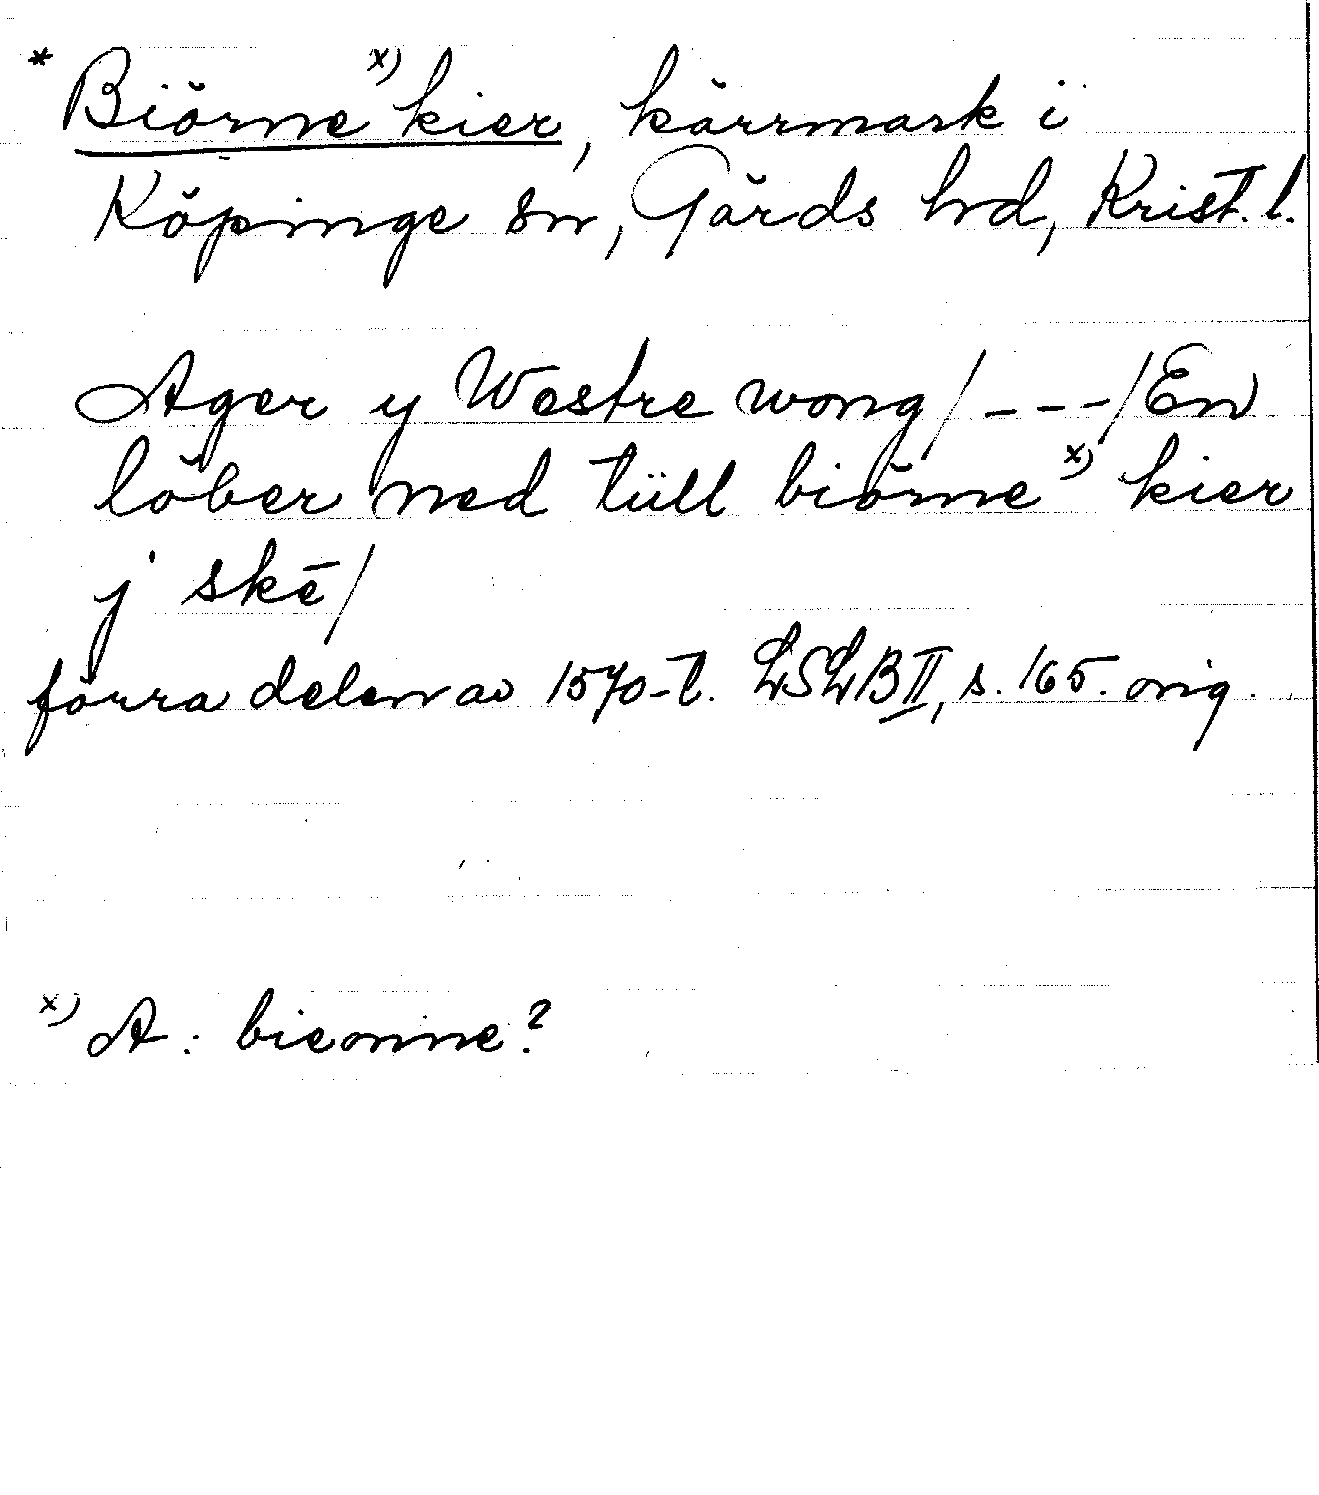 * Biörne x) kier, kärrmark i
Köpinge sn, Gärds hd, Krist. l.
Ager y Westre wong/---/En
löber ned tüll biörne x) kier
j skē/
förra delen av 1570-t. LSLB II, s. 165. orig.
x) A: bieonne?